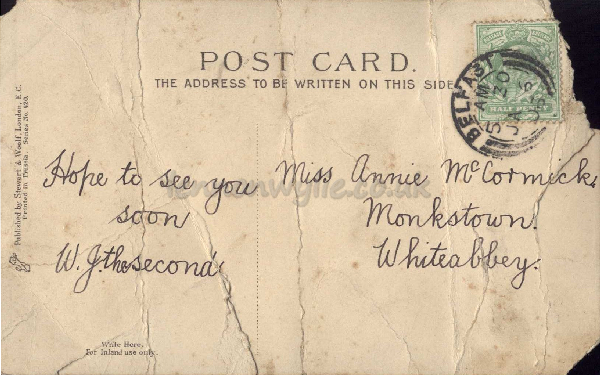 POST CARD.
THE ADDRESS TO BE WRITTEN ON THIS SIDE
HALF PENNY
BELFAST
5 AM
JA 20
Published by Stewart & Woolf, London, E.C.
Printed in Prussia. Series No. 620.
Hope to see you
soon
W. J. the second
Miss Annie McCormick,
Monkstown.
Whiteabbey.
Write Here.
For Inland use only.